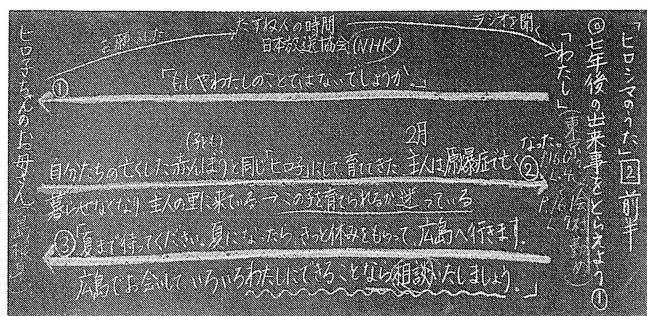 「ヒロシマのうた」2 前半
◎七年後の出来事をとらえよう①
「わたし」(東京 会社勤め)
ラジオを聞く
たずね人の時間
日本放送協会(NHK)
お願いした
①
「もしやわたしのことではないでしょうか。」
(子ども)
2月
自分たちの亡くした赤んぼうと同じ「ヒロ子」にして、育ててきた 主人は原爆症で亡くなった。
②
暮らせなくなり 主人の里に来ている→この子を育てられるか迷っている
③「夏まで待ってください。夏になったら、きっと休みをもらって、広島へ行きます。
広島でお会いして、いろいろわたしにできることなら相談いたしましょう。」
ヒロ子ちゃんのお母さん(島根県)